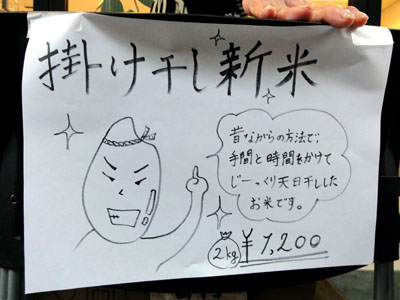 掛け干し新米
昔ながらの方法で、
手間と時間をかけて
じーっくり天日干しした
お米です。
2kg ¥1,200